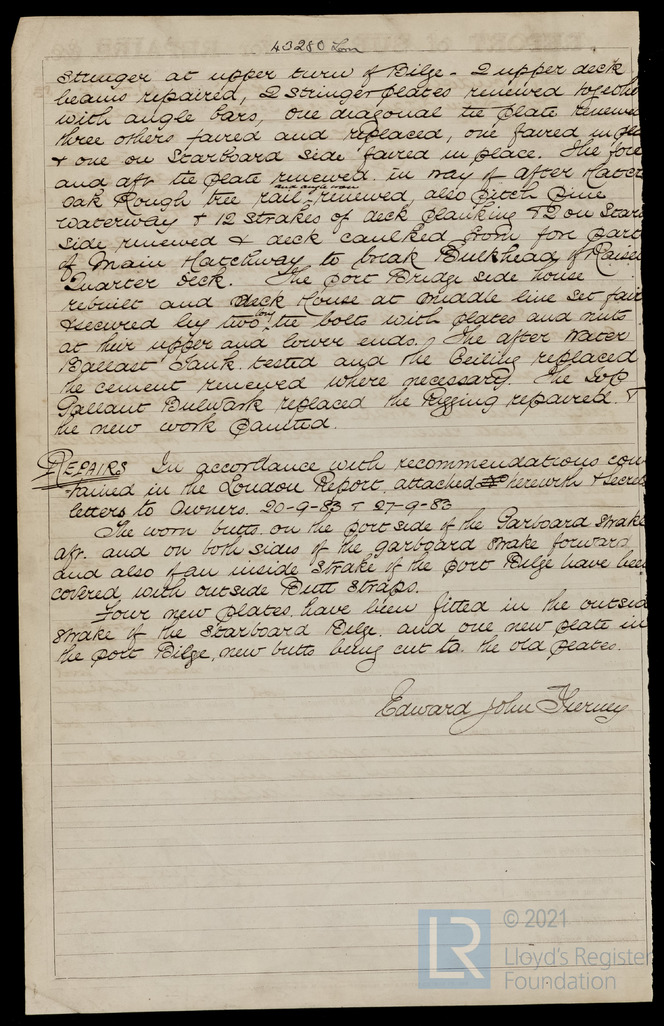 43280 Lon
Stringer at upper turn of Bilge - 2 upper deck
beams repaired, 2 Stringer plates renewed together
with angle bars, one diagonal tie plate renewed
three others faired and replaced, one faired in
& one on Starboard side faired in place. The fore
and aft tie plate renewed in way of after Hatch
and angle iron
oak Rough tree rail renewed, also pitch pine
waterway & 12 strakes of deck planking & 2 on Star
side renewed & deck caulked from fore part
of Main Hatchway to break Bulkhead of Raised
Quarter deck. The port Bridge side house
rebuilt and deck House at middle line set fair
& secured by two tie bolts with plates and nuts
at their upper and lower ends. The after Water
Ballast Tank tested and the Ceiling replaced
the cement renewed where necessary. The Top
Gallant Bulwark replaced the Rigging repaired &
the new work painted.
Repairs In accordance with recommendations con
tained in the London Report attached herewith & Secrets
letters to Owners 20-9-83 & 27-9-83
The worn butts on the port side of the Garboard Strake
aft. and on both sides of the garboard strake forward
and also of an inside strake of the port Bilge have been
covered with outside Butt Straps.
Four new plates have been fitted in the outside
strake of the Starboard Bilge and one new plate in
the port Bilge, new butts being cut to the old plates.
Edward John Tierney
LR
© 2021
Lloyd's Register
Foundation